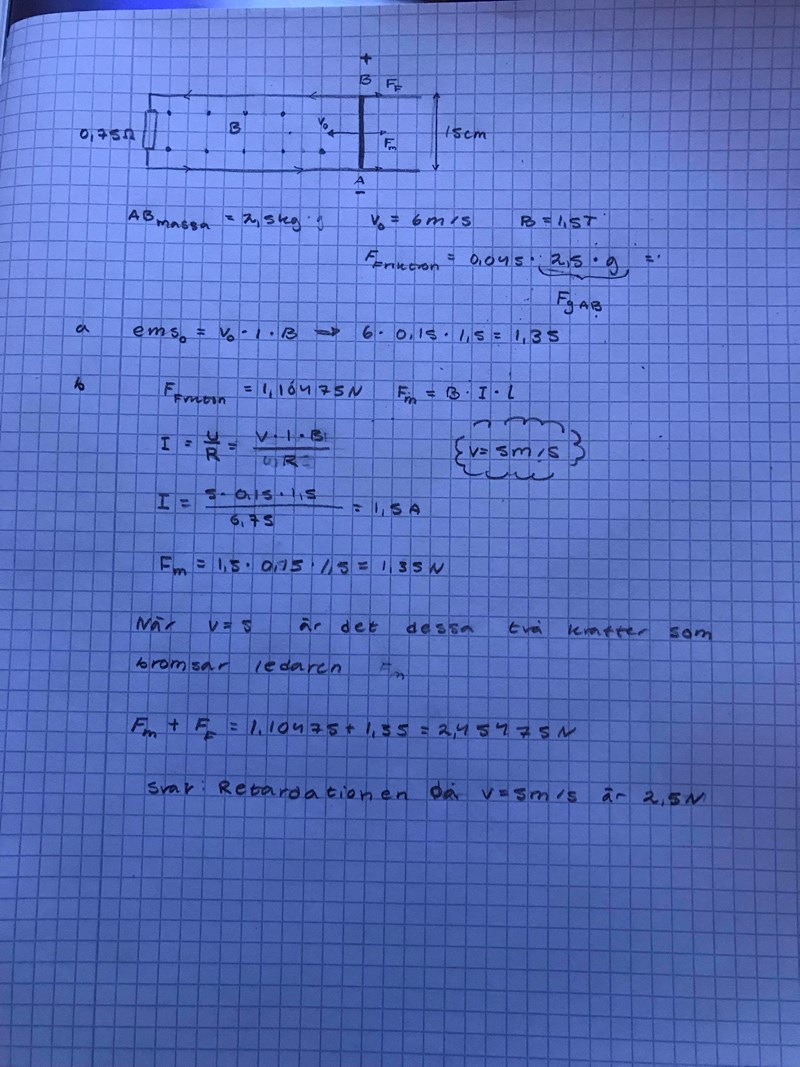 +
B F_F
0,75Ω B v₀ F_m 15cm
A
–
AB_massa = 2,5kg · g v₀ = 6m/s B = 1,5T
F_Friktion = 0,045 · 2,5 · g =
F_g AB
a ems₀ = v₀ · l · B → 6 · 0,15 · 1,5 = 1,35
b F_Friktion = 1,10475N F_m = B · I · l
I = U/R = v · l · B / R {v = 5m/s}
I = 5 · 0,15 · 1,5 / 0,75 = 1,5A
F_m = 1,5 · 0,15 · 1,5 = 1,35N
När v=5 är det dessa två krafter som
bromsar ledaren
F_m + F_F = 1,10475 + 1,35 = 2,45475N
svar: Retardationen då v=5m/s är 2,5N